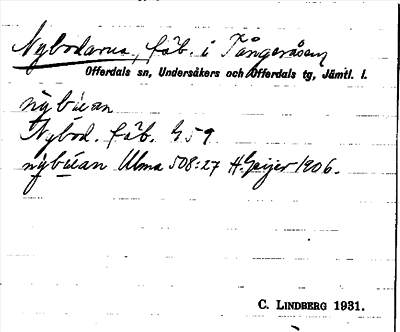 Nybodarna, fäb. i Tångeråsen
Offerdals sn, Undersåkers och Offerdals tg, Jämtl. l.
nybúan
Nybod. fäb. G59
nybúan Ulma 508:27 H. Geijer 1906.
C. LINDBERG 1931.